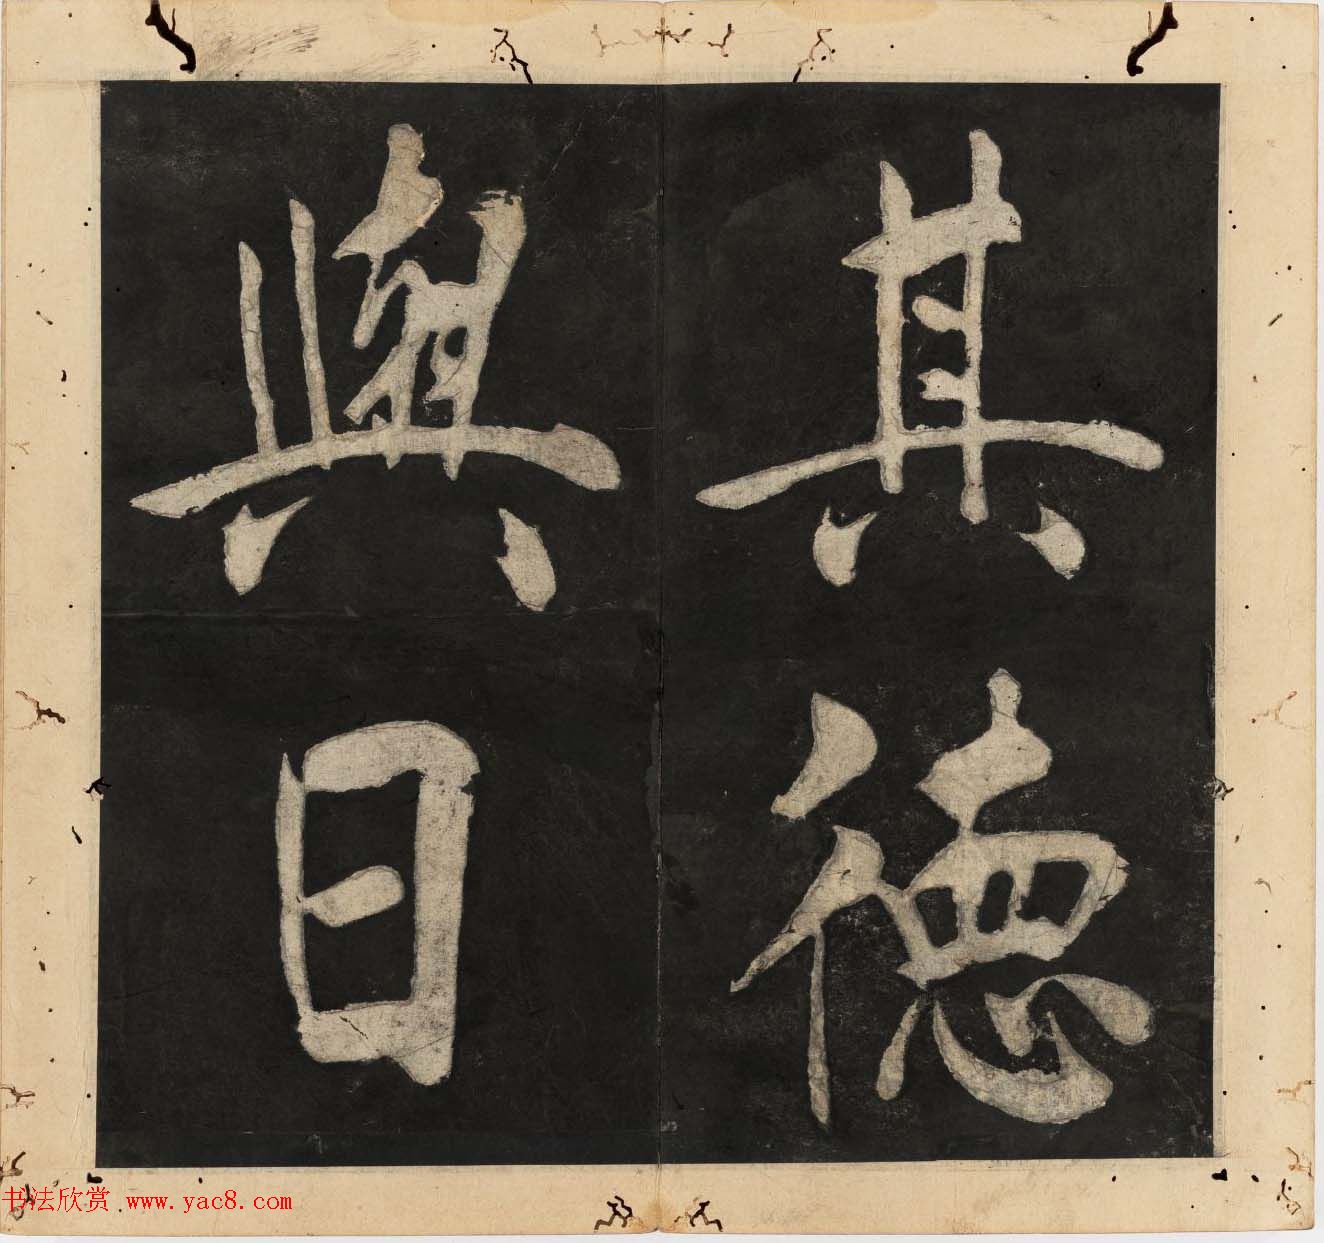 其德
與日
书法欣赏 www.yac8.com